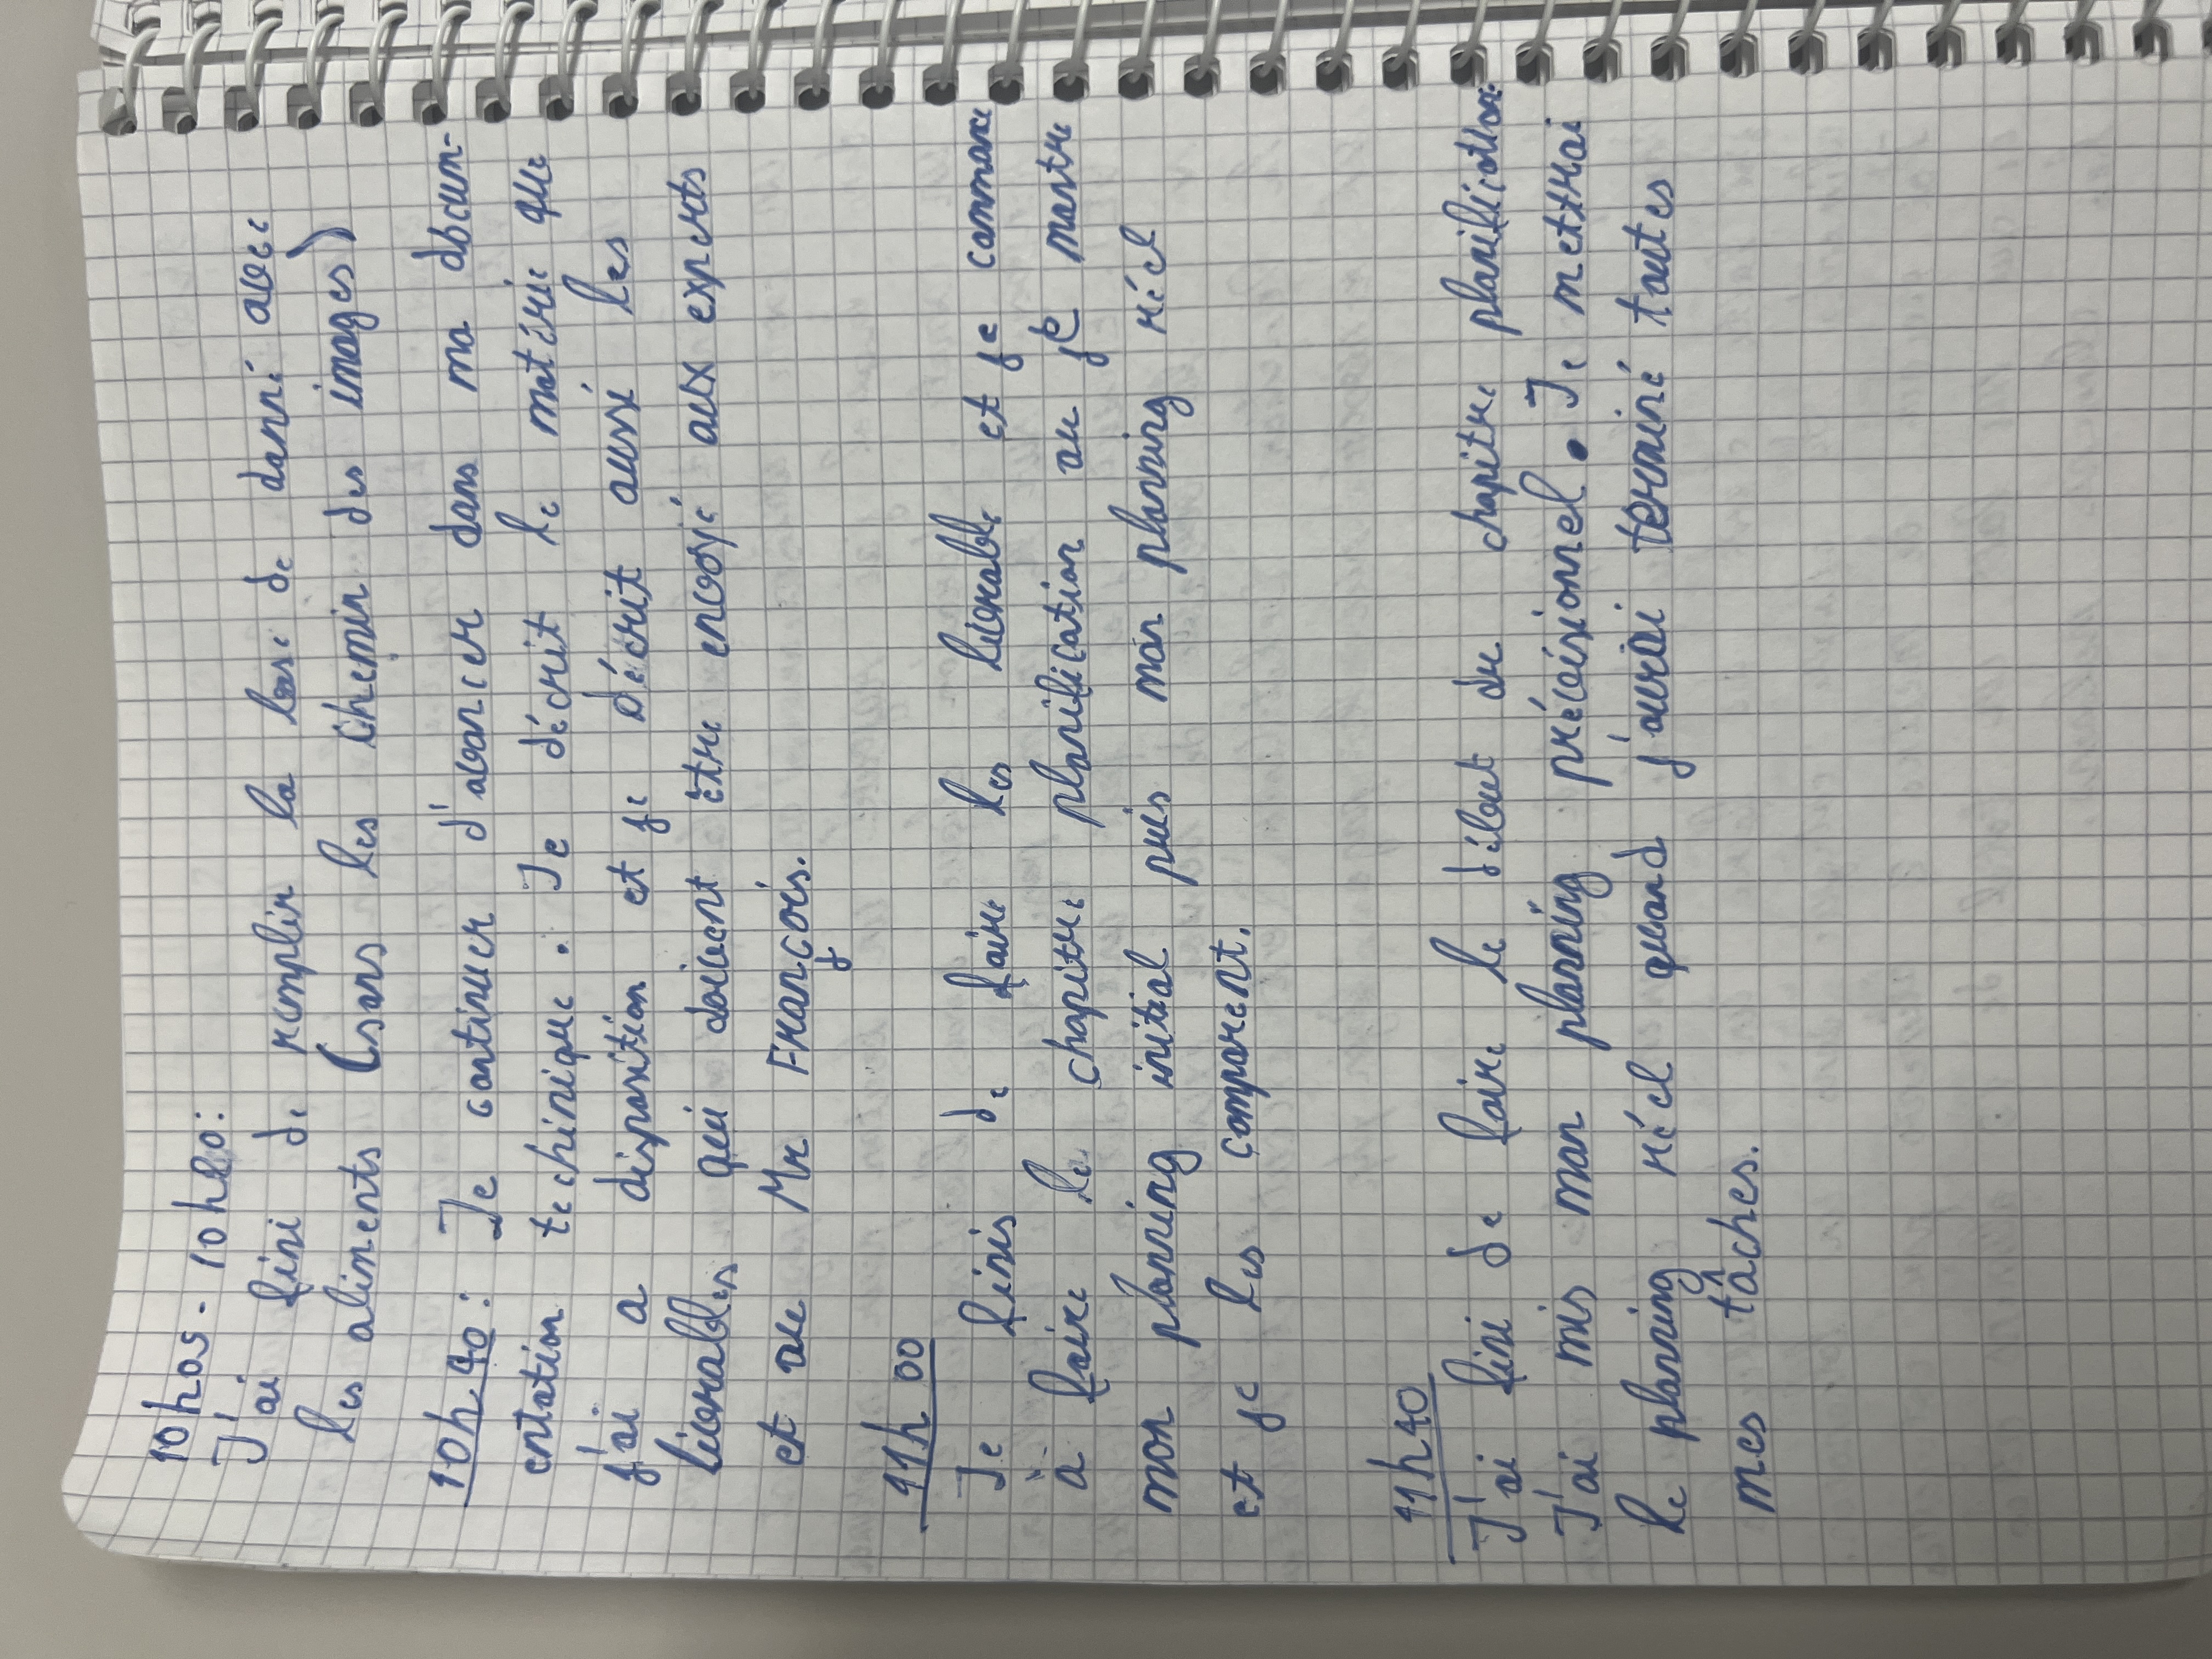 10h05 - 10h20:
J'ai fini de remplir la base de donné avec
les aliments (sans les chemin des images)
10h40: Je continuer d'avancer dans ma docum-
entation techinique. Je décrit le matérie que
j'ai a disposition et je décrit aussi les
livrables qui doivent être envoyé aux experts
et au Mr François.
11h 00
Je finis de faire les livrable et je commance
à faire le chapitre planification ou je montre
mon planning initial puis mon planning réel
et je les comparent.
11h40
J'ai fini de faire le début du chapitre planification.
J'ai mis mon planning prévisionnel. Je mettrai
le planning réel quand j'aurai terminé toutes
mes tâches.